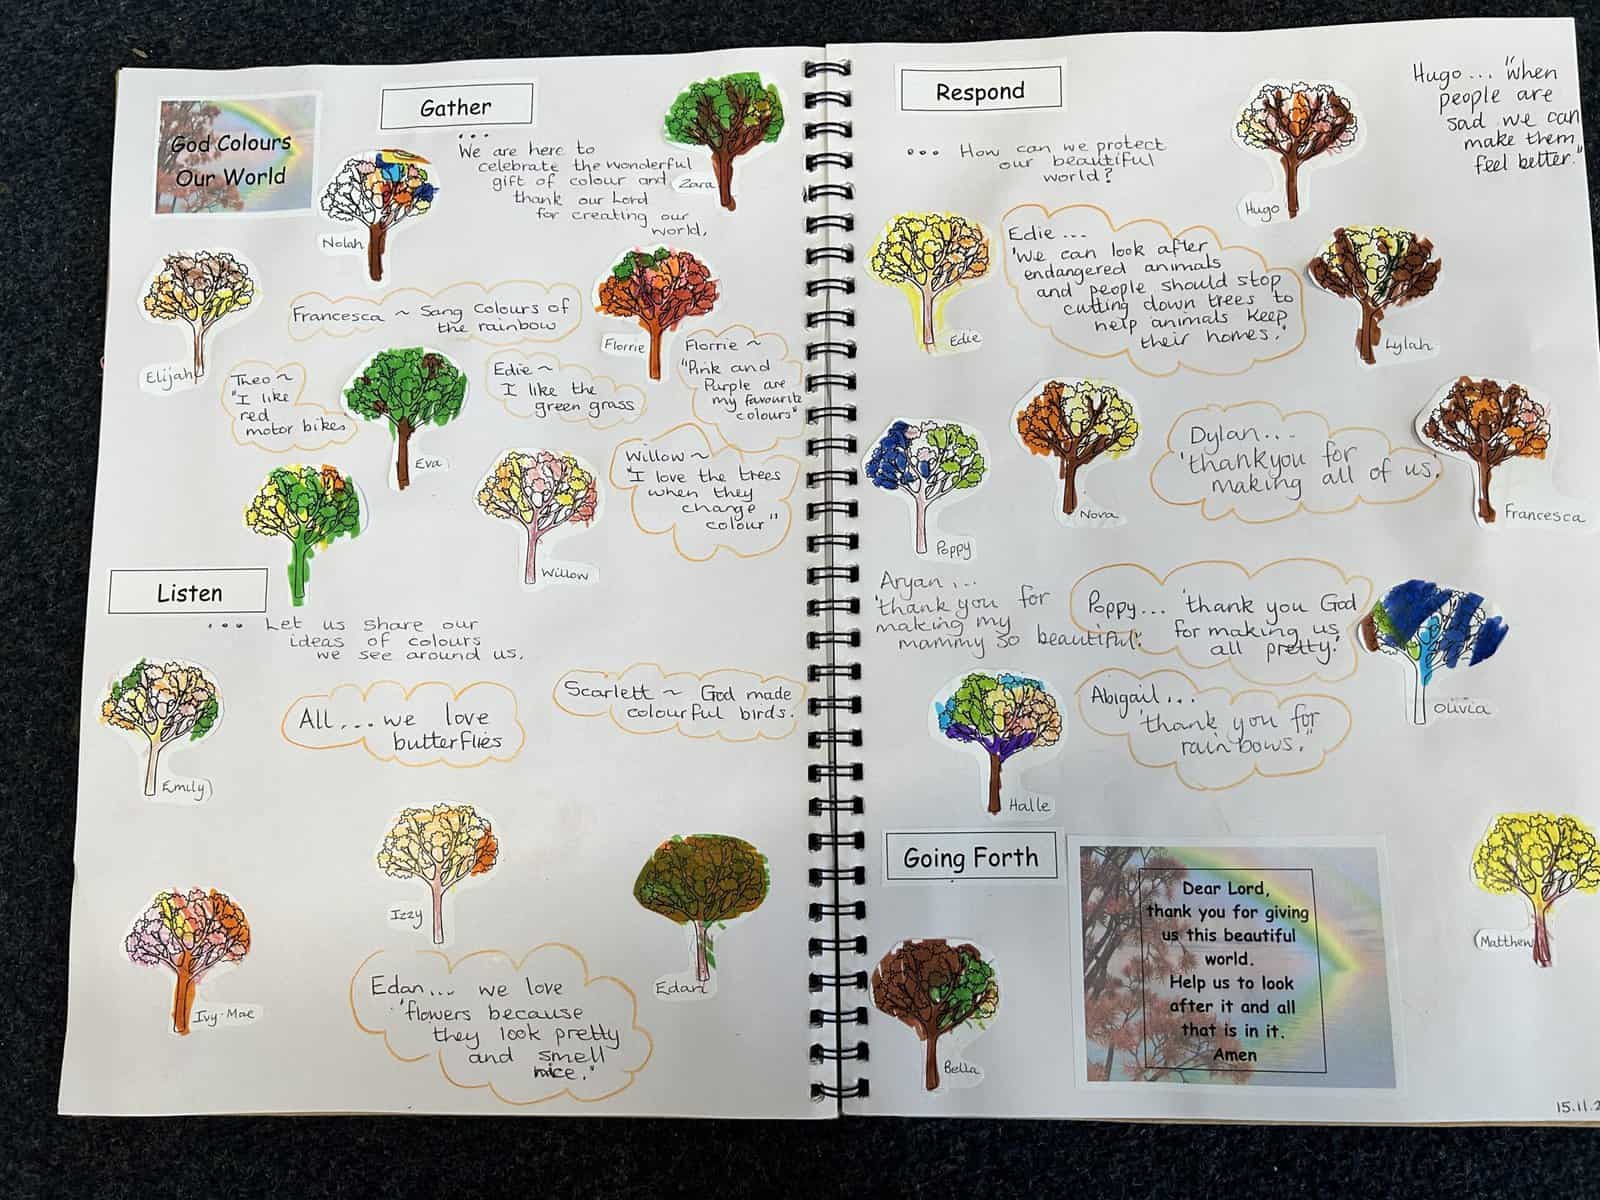 God Colours
Our World
Gather
...
We are here to
celebrate the wonderful
gift of colour and
thank our Lord
for creating our
world.
Zara
Nolah
Elijah
Francesca ~ Sang colours of
the rainbow
Florrie
Florrie ~
"Pink and
Purple are
my favourite
colours"
Theo ~
"I like
red
motor bikes
Eva
Edie ~
I like the
green grass
Willow ~
"I love the trees
when they
change
colour"
Willow
Listen
... Let us share our
ideas of colours
we see around us.
Emily
All... we love
butterflies
Scarlett ~ God made
colourful birds.
Izzy
Ivy-Mae
Edan
Edan... we love
'flowers because
they look pretty
and smell
nice."
Respond
... How can we protect
our beautiful
world?
Hugo
Hugo... "when
people are
sad we can
make them
feel better."
Edie
Edie...
'We can look after
endangered animals
and people should stop
cutting down trees to
help animals keep
their homes.'
Lylah
Poppy
Nova
Dylan...
'thankyou for
making all of us.'
Francesca
Aryan...
'thank you for
making my
mammy so beautiful.'
Poppy... 'thank you God
for making us
all pretty.'
Olivia
Halle
Abigail...
'thank you for
rainbows."
Going Forth
Dear Lord,
thank you for giving
us this beautiful
world.
Help us to look
after it and all
that is in it.
Amen
Matthew
Bella
15.11.2